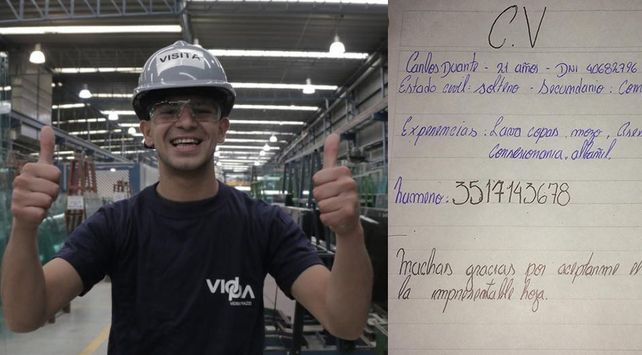 VISITA
VIDPIA
C.V
Carlos Duarte - 21 años - DNI 40682796
Estado civil: soltero - Secundario: Com
Experiencias: Lava copas, mozo,
Consesionaria, albañil.
humeno: 3517143678
Muchas gracias por aceptarme e
la impresentable hoja.